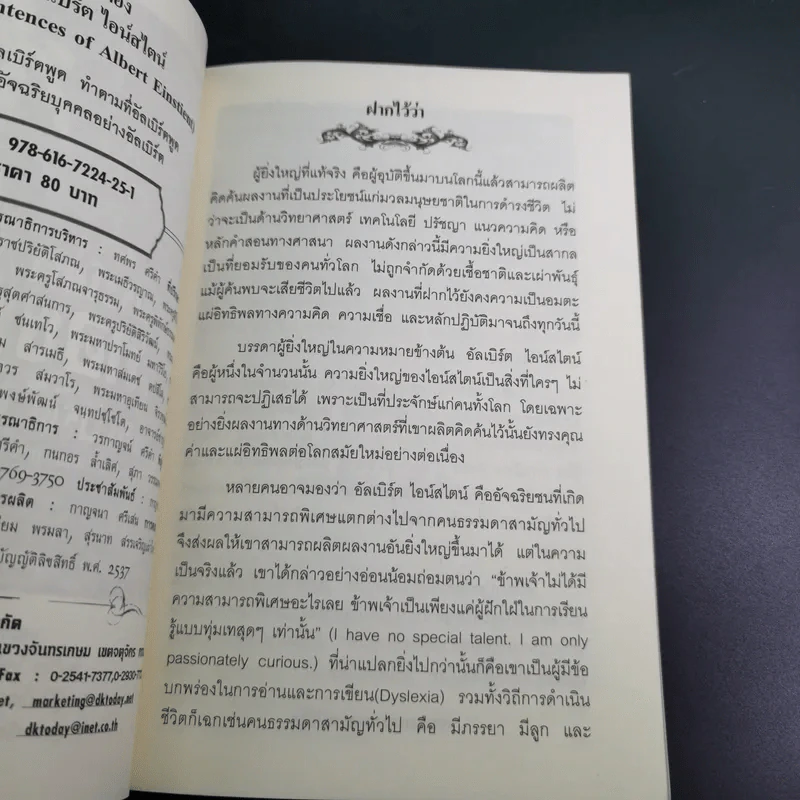 ไอน์สไตน์
ntences of Albert Einstien)
ลเบิร์ตพูด ทำตามที่อัลเบิร์ตพูด
อัจฉริยบุคคลอย่างอัลเบิร์ต
978-616-7224-25-1
ราคา 80 บาท
รณาธิการบริหาร : ทศพร ศรีคำ
ราชปริยัติโสภณ, พระเมธีวรญาณ,
พระครูโสภณจารุธรรม,
รสุตศาสนการ, พระครูปริยัติสิริวัฒน์,
ชนเทโว, พระมหาปราโมทย์
ม สารเมธี, พระมหาสมเดช
ถาวร สมวาโร, พระมหาอุเทียน
พงษ์พัฒน์ จนฺทปชฺโชโต,
รณาธิการ : วรกาญจน์ ศรีคำ
รีคำ, กนกอร ล้ำเลิศ, สุภา
769-3750 ประชาสัมพันธ์ :
รผลิต : กาญจนา ศรีเสน
ยม พรมลา, สุรนาท
บัญญัติลิขสิทธิ์ พ.ศ. 2537
กัด
แขวงจันทรเกษม เขตจตุจักร
Fax : 0-2541-7377,
et, marketing@dktoday.net
dktoday@inet.co.th
ฝากไว้ว่า
ผู้ยิ่งใหญ่ที่แท้จริง คือผู้อุบัติขึ้นมาบนโลกนี้แล้วสามารถผลิต
คิดค้นผลงานที่เป็นประโยชน์แก่มวลมนุษยชาติในการดำรงชีวิต ไม่
ว่าจะเป็นด้านวิทยาศาสตร์ เทคโนโลยี ปรัชญา แนวความคิด หรือ
หลักคำสอนทางศาสนา ผลงานดังกล่าวนี้มีความยิ่งใหญ่เป็นสากล
เป็นที่ยอมรับของคนทั่วโลก ไม่ถูกจำกัดด้วยเชื้อชาติและเผ่าพันธุ์
แม้ผู้ค้นพบจะเสียชีวิตไปแล้ว ผลงานที่ฝากไว้ยังคงความเป็นอมตะ
แผ่อิทธิพลทางความคิด ความเชื่อ และหลักปฏิบัติมาจนถึงทุกวันนี้
บรรดาผู้ยิ่งใหญ่ในความหมายข้างต้น อัลเบิร์ต ไอน์สไตน์
คือผู้หนึ่งในจำนวนนั้น ความยิ่งใหญ่ของไอน์สไตน์เป็นสิ่งที่ใครๆ ไม่
สามารถจะปฏิเสธได้ เพราะเป็นที่ประจักษ์แก่คนทั้งโลก โดยเฉพาะ
อย่างยิ่งผลงานทางด้านวิทยาศาสตร์ที่เขาผลิตคิดค้นไว้นั้นยังทรงคุณ
ค่าและแผ่อิทธิพลต่อโลกสมัยใหม่อย่างต่อเนื่อง
หลายคนอาจมองว่า อัลเบิร์ต ไอน์สไตน์ คืออัจฉริยชนที่เกิด
มามีความสามารถพิเศษแตกต่างไปจากคนธรรมดาสามัญทั่วไป
จึงส่งผลให้เขาสามารถผลิตผลงานอันยิ่งใหญ่ขึ้นมาได้ แต่ในความ
เป็นจริงแล้ว เขาได้กล่าวอย่างอ่อนน้อมถ่อมตนว่า "ข้าพเจ้าไม่ได้มี
ความสามารถพิเศษอะไรเลย ข้าพเจ้าเป็นเพียงแค่ผู้ฝักใฝ่ในการเรียน
รู้แบบทุ่มเทสุดๆ เท่านั้น" (I have no special talent. I am only
passionately curious.) ที่น่าแปลกยิ่งไปกว่านั้นก็คือเขาเป็นผู้มีข้อ
บกพร่องในการอ่านและการเขียน(Dyslexia) รวมทั้งวิถีการดำเนิน
ชีวิตก็เฉกเช่นคนธรรมดาสามัญทั่วไป คือ มีภรรยา มีลูก และ